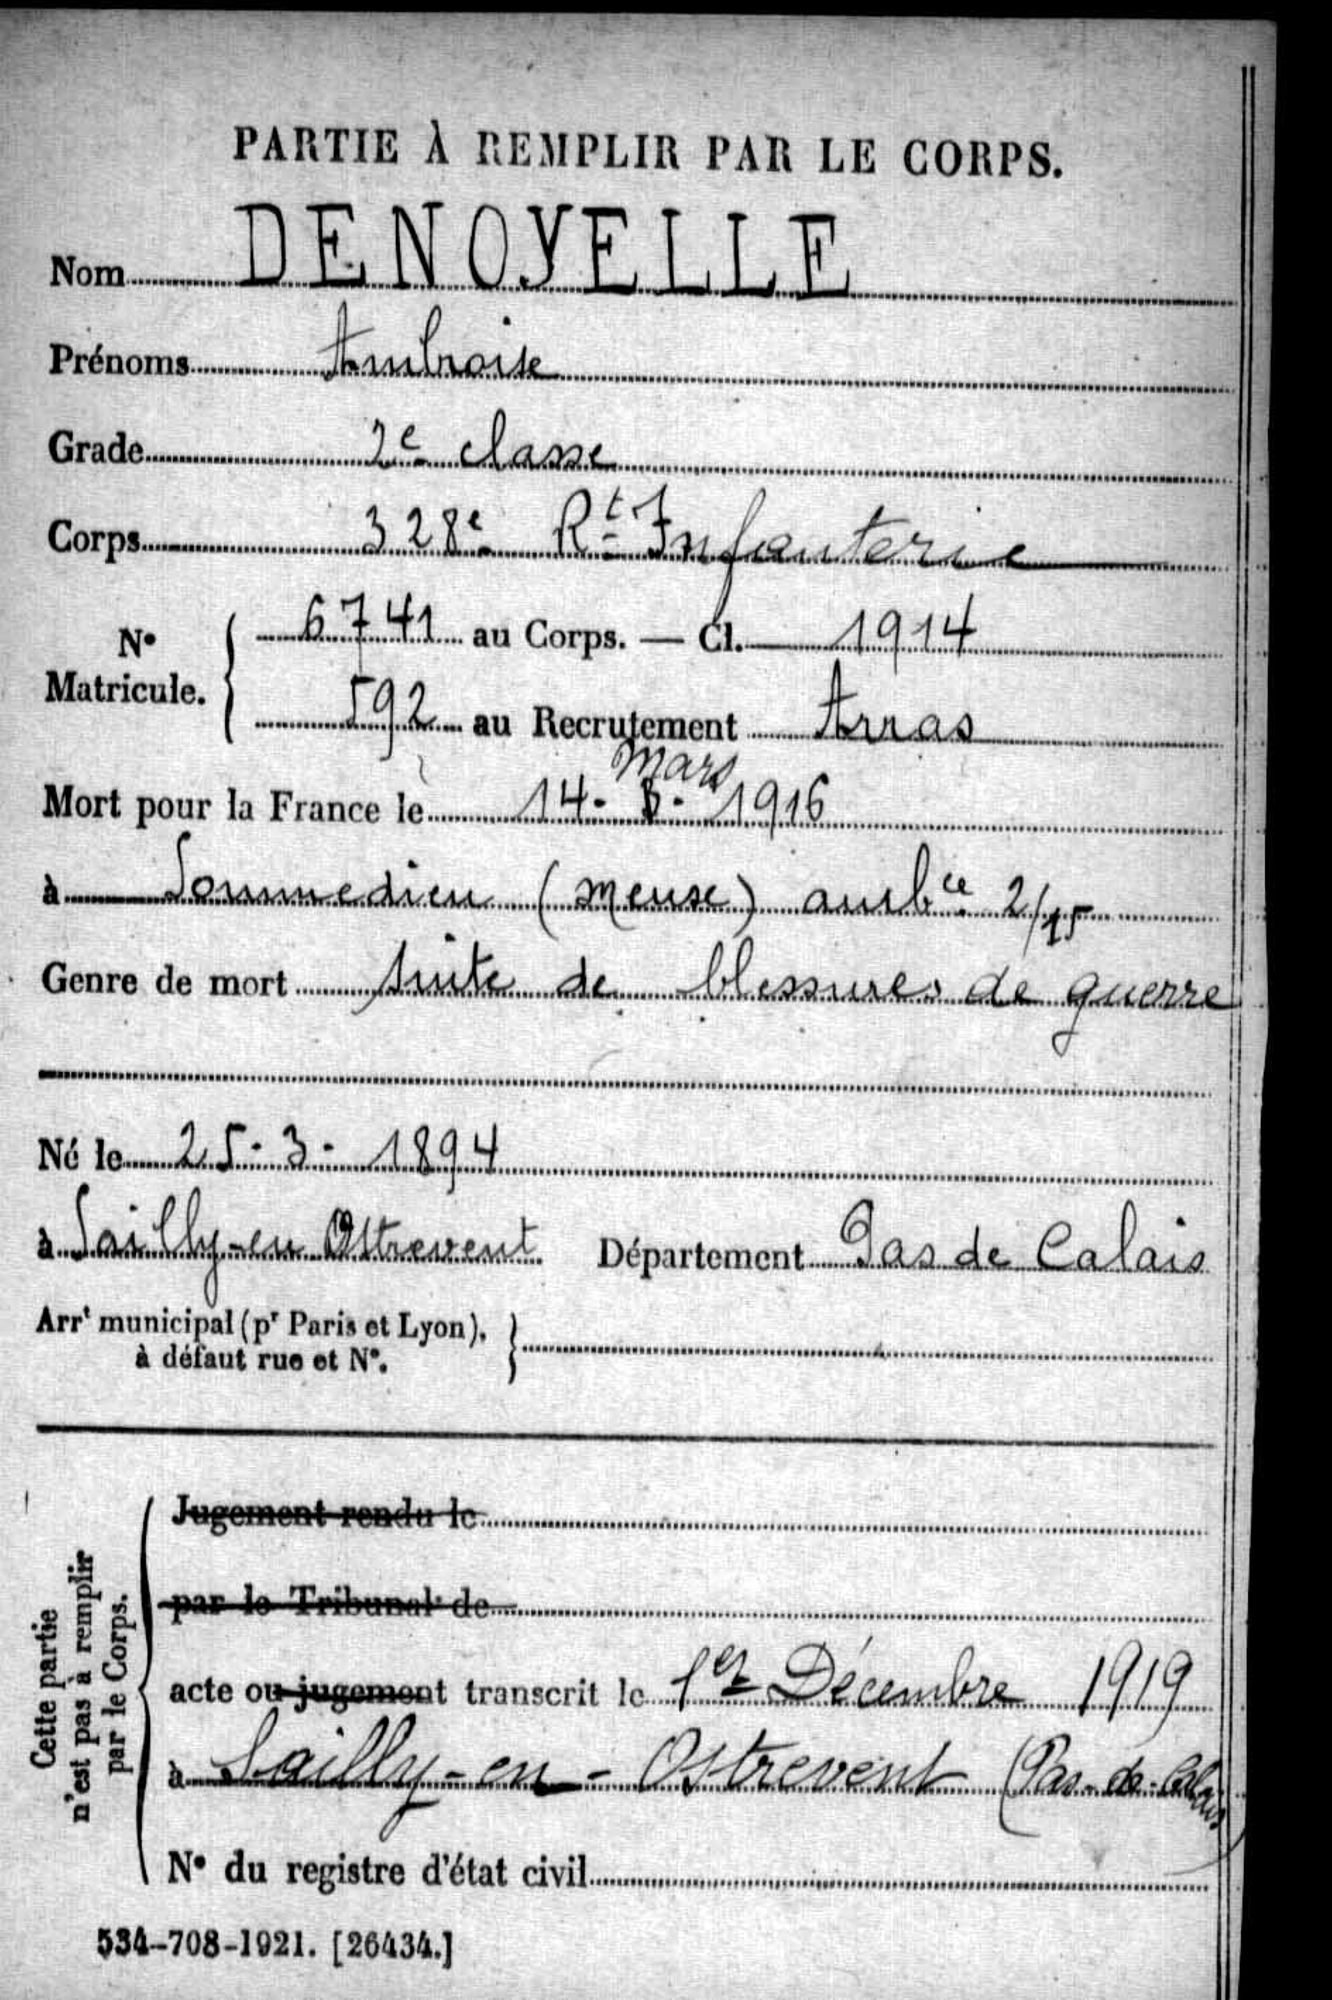 PARTIE À REMPLIR PAR LE CORPS.
Nom DENOYELLE
Prénoms Ambroise
Grade 2e classe
Corps 328e Rt Infanterie
No Matricule. 6741 au Corps. — Cl. 1914
592 au Recrutement Arras
mars
Mort pour la France le 14. 3. 1916
à Sommedieu (Meuse) ambce 2/15
Genre de mort suite de blessures de guerre
Né le 25. 3. 1894
à Sailly-en Ostrevent Département Pas de Calais
Arrt municipal (pr Paris et Lyon), à défaut rue et No.
Cette partie n'est pas à remplir par le Corps.
Jugement rendu le
par le Tribunal de
acte ou jugement transcrit le 1er Décembre 1919
à Sailly-en-Ostrevent (Pas-de-Calais)
No du registre d'état civil
534-708-1921. [26434.]